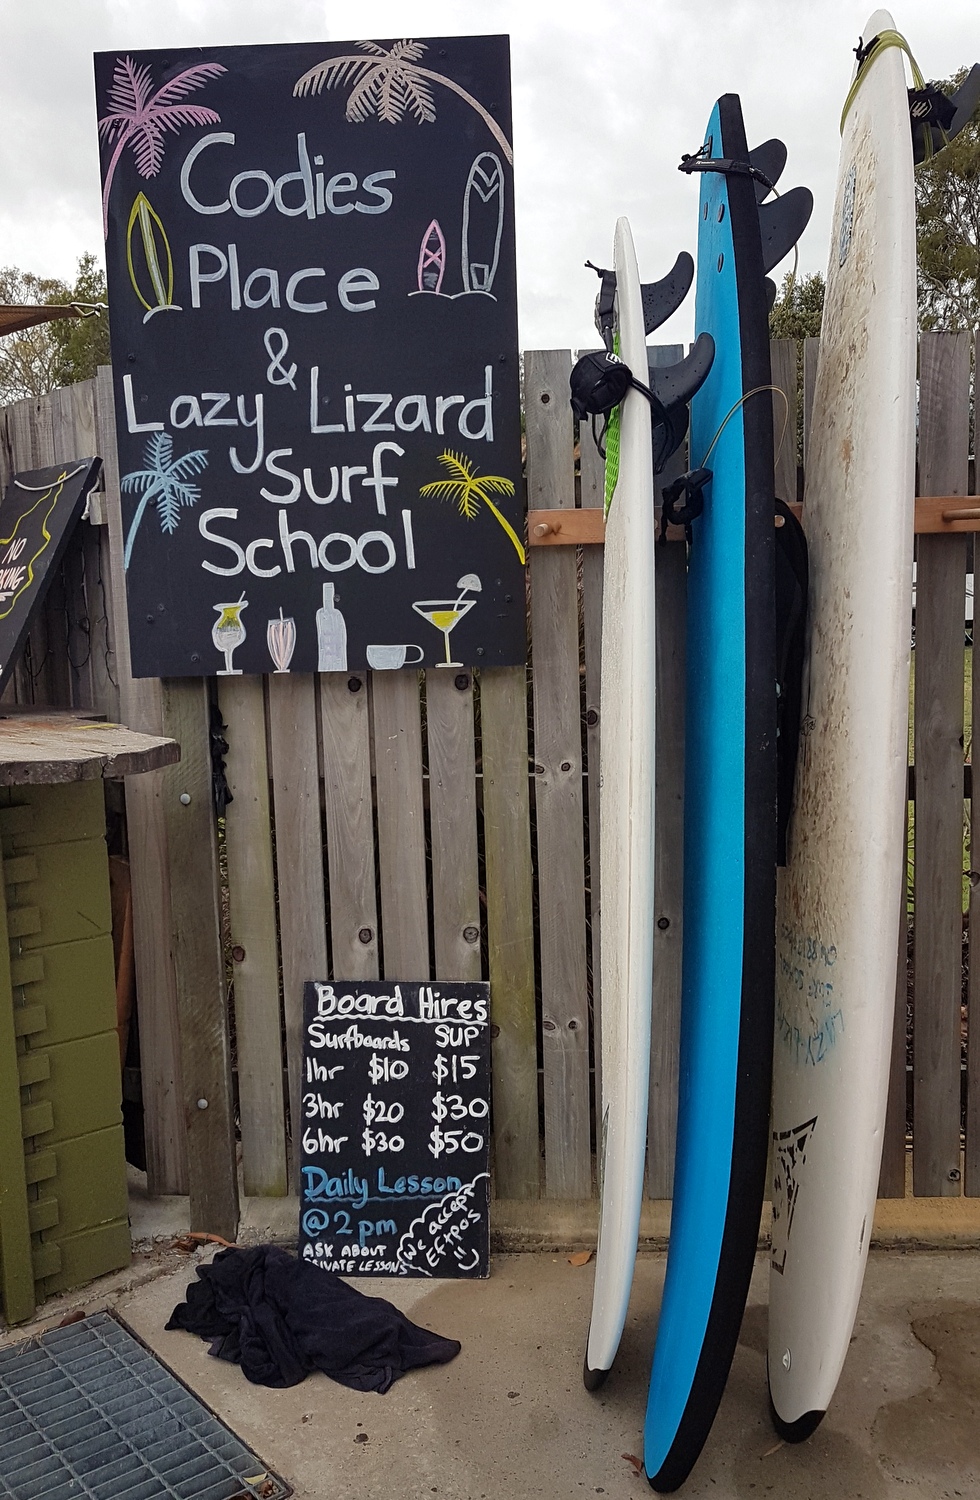 Codies
Place
&
Lazy Lizard
Surf
School
NO
Board Hires
Surfboards SUP
1hr $10 $15
3hr $20 $30
6hr $30 $50
Daily Lesson
@ 2pm
We accept
Eftpos
ASK ABOUT
PRIVATE LESSONS